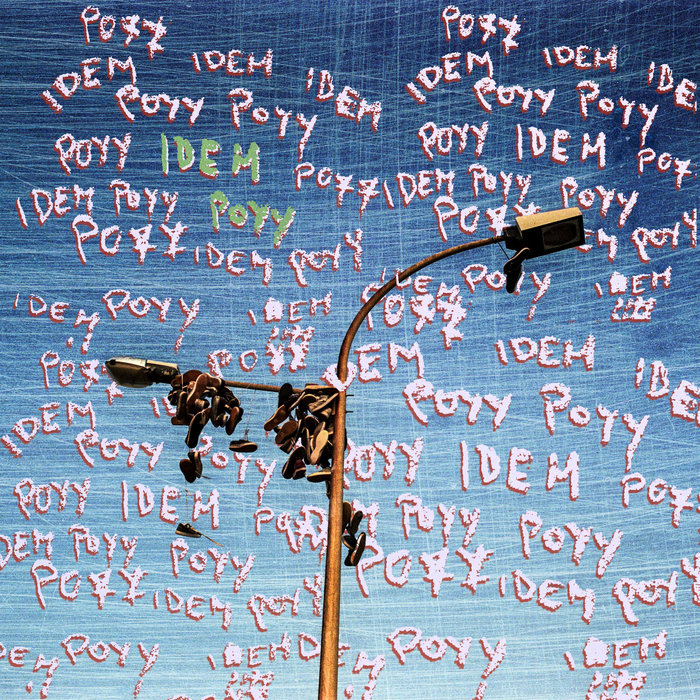 POYY POYY
IDEM IDEM IDEM IDEM IDEM IDEM
POYY POYY POYY POYY
POYY IDEM POYY POYY IDEM POYY
IDEM POYY POYY IDEM POYY POYY
POYY IDEM POYY POYY POYY
IDEM POYY IDEM
IDEM POYY IDEM POYY
POYY POYY IDEM IDEM IDEM
IDEM POYY POYY POYY POYY
POYY IDEM POYY IDEM POYY
IDEM POYY POYY POYY POYY
POYY IDEM POYY POYY IDEM POYY
POYY IDEM IDEM POYY IDEM